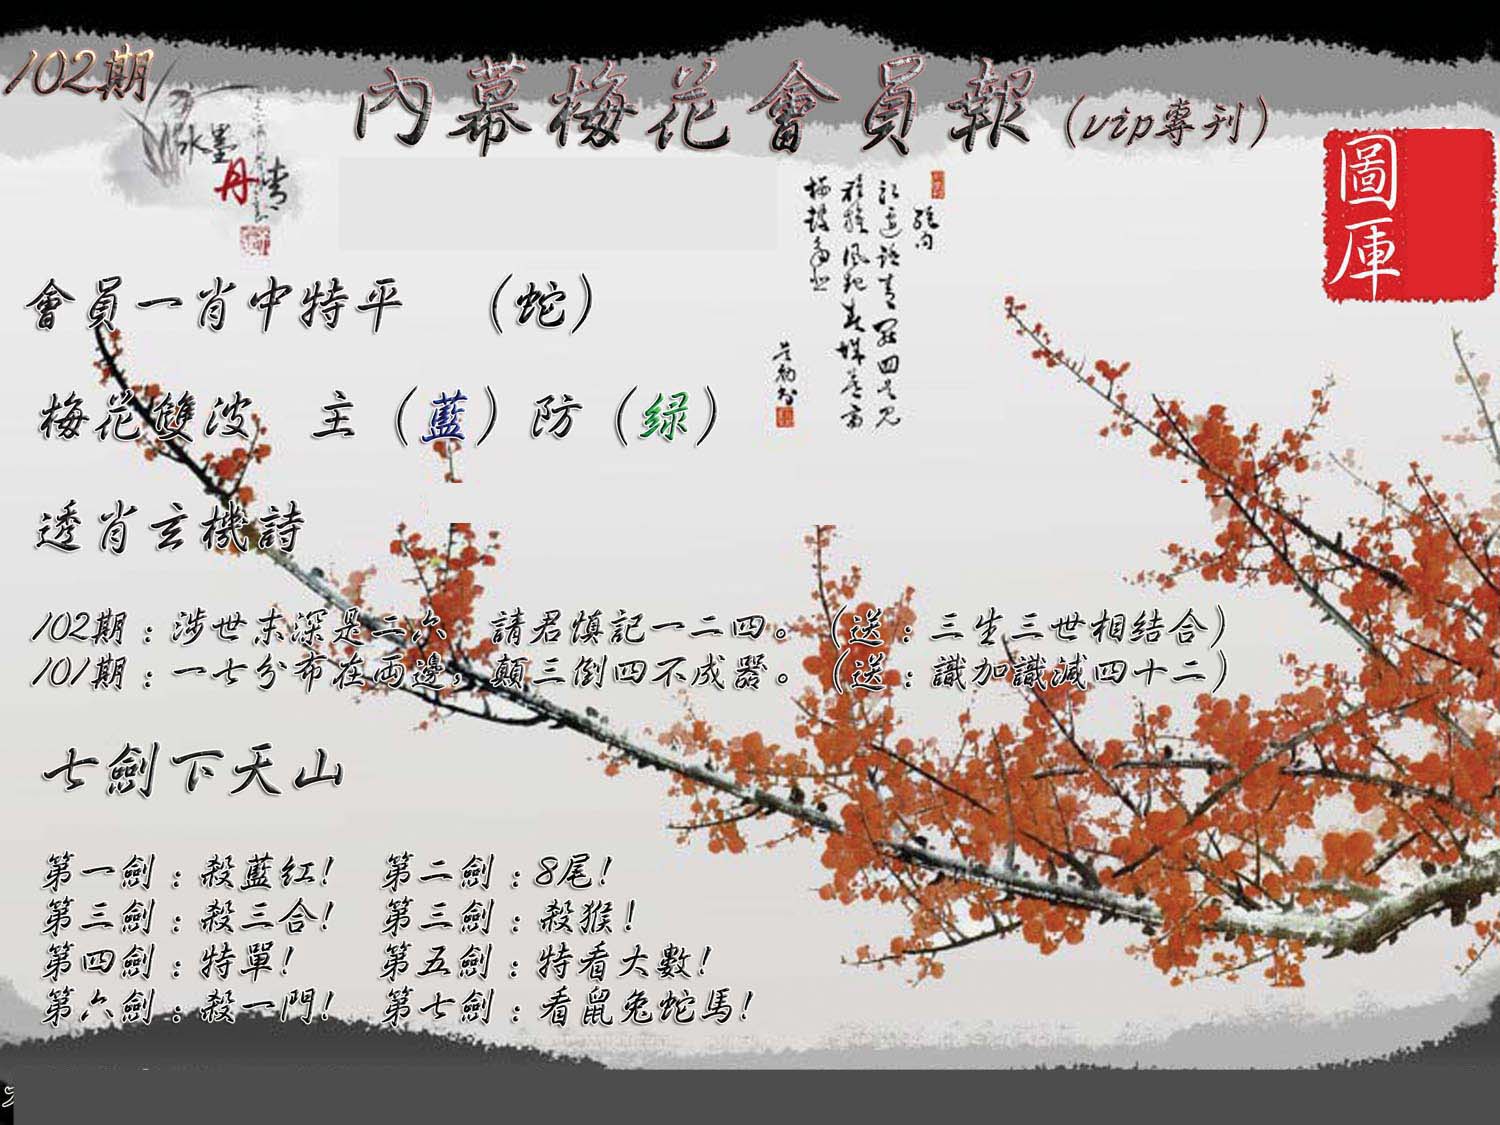 102期
內幕梅花會員報(vip專刊)
水墨
丹青
圖庫
會員一肖中特平 (蛇)
梅花雙波 主(藍)防(绿)
透肖玄機詩
102期:涉世未深是二六,請君慎記一二四。(送:三生三世相结合)
101期:一七分布在両邊,顛三倒四不成器。(送:識加識減四十二)
七劍下天山
第一劍:殺藍紅! 第二劍:8尾!
第三劍:殺三合! 第三劍:殺猴!
第四劍:特單! 第五劍:特看大數!
第六劍:殺一門! 第七劍:看鼠兔蛇馬!